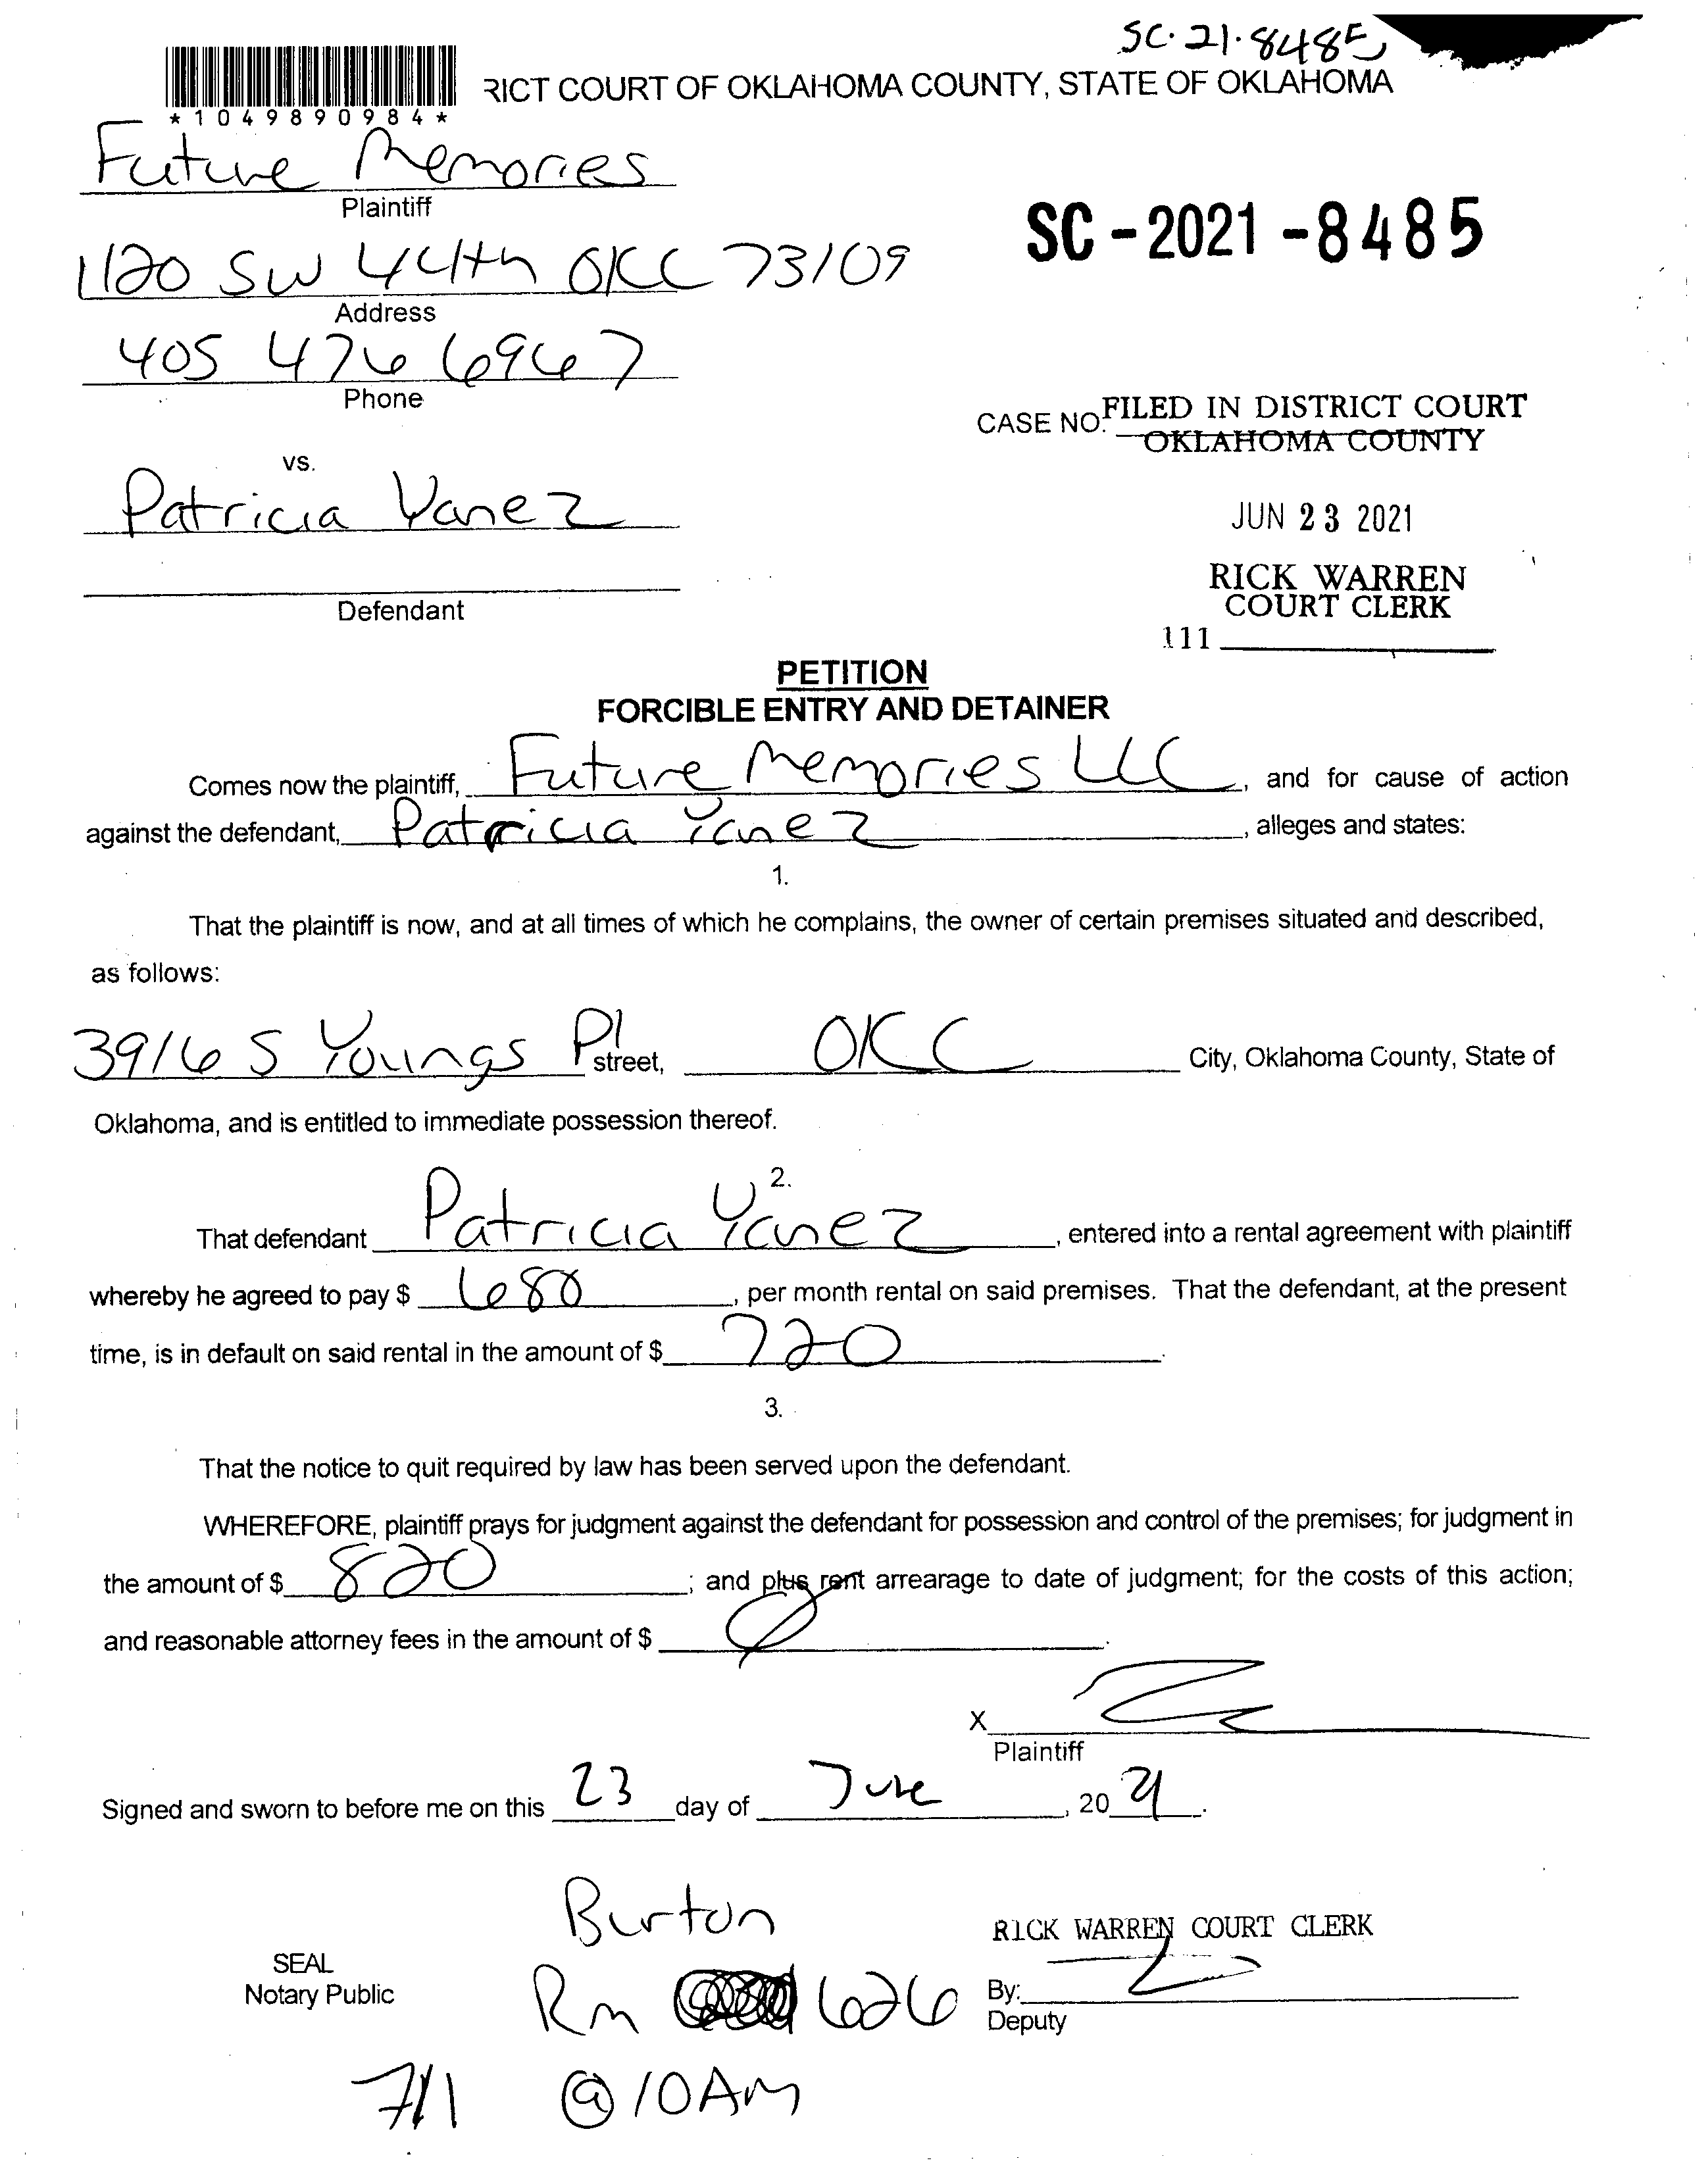 SC·21·8485
RICT COURT OF OKLAHOMA COUNTY, STATE OF OKLAHOMA
*1049890984*
Future Memories
Plaintiff
SC-2021-8485
1120 SW 44th OKC 73109
Address
405 476 6967
Phone
CASE NO. FILED IN DISTRICT COURT
OKLAHOMA COUNTY
vs.
Patricia Yanez
JUN 23 2021
Defendant
RICK WARREN
COURT CLERK
111
PETITION
FORCIBLE ENTRY AND DETAINER
Comes now the plaintiff, Future Memories LLC, and for cause of action
against the defendant, Patricia Yanez, alleges and states:
1.
That the plaintiff is now, and at all times of which he complains, the owner of certain premises situated and described,
as follows:
3916 S Youngs Pl street, OKC City, Oklahoma County, State of
Oklahoma, and is entitled to immediate possession thereof.
2.
That defendant Patricia Yanez, entered into a rental agreement with plaintiff
whereby he agreed to pay $ 680, per month rental on said premises. That the defendant, at the present
time, is in default on said rental in the amount of $ 720.
3.
That the notice to quit required by law has been served upon the defendant.
WHEREFORE, plaintiff prays for judgment against the defendant for possession and control of the premises; for judgment in
the amount of $ 820; and plus rent arrearage to date of judgment; for the costs of this action;
and reasonable attorney fees in the amount of $ 0.
X
Plaintiff
Signed and sworn to before me on this 23 day of June, 20 21.
Burton
RICK WARREN COURT CLERK
SEAL
Notary Public
Rm 626
By:
Deputy
7/1 @ 10AM